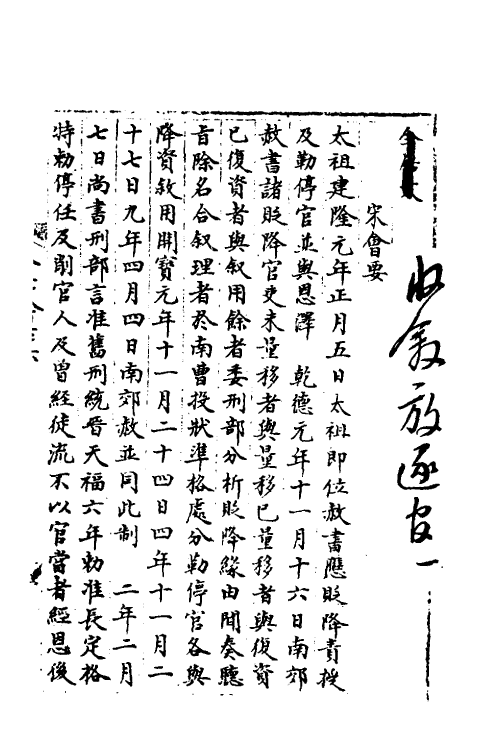 收敘放逐官一
宋會要
太祖建隆元年正月五日太祖即位赦書應貶降責授
及勒停官並與恩澤　乾德元年十一月十六日南郊
赦書諸貶降官吏未量移者與量移已量移者與復資
已復資者與叙用餘者委刑部分析貶降緣由聞奏聽
旨除名合叙理者於南曹投狀準格處分勒停官各與
降資敘用開寶元年十一月二十四日四年十一月二
十七日九年四月四日南郊赦並同此制　二年二月
七日尚書刑部言准舊刑統晉天福六年勑准長定格
特勑停任及削官人及曾經徒流不以官當者經恩後